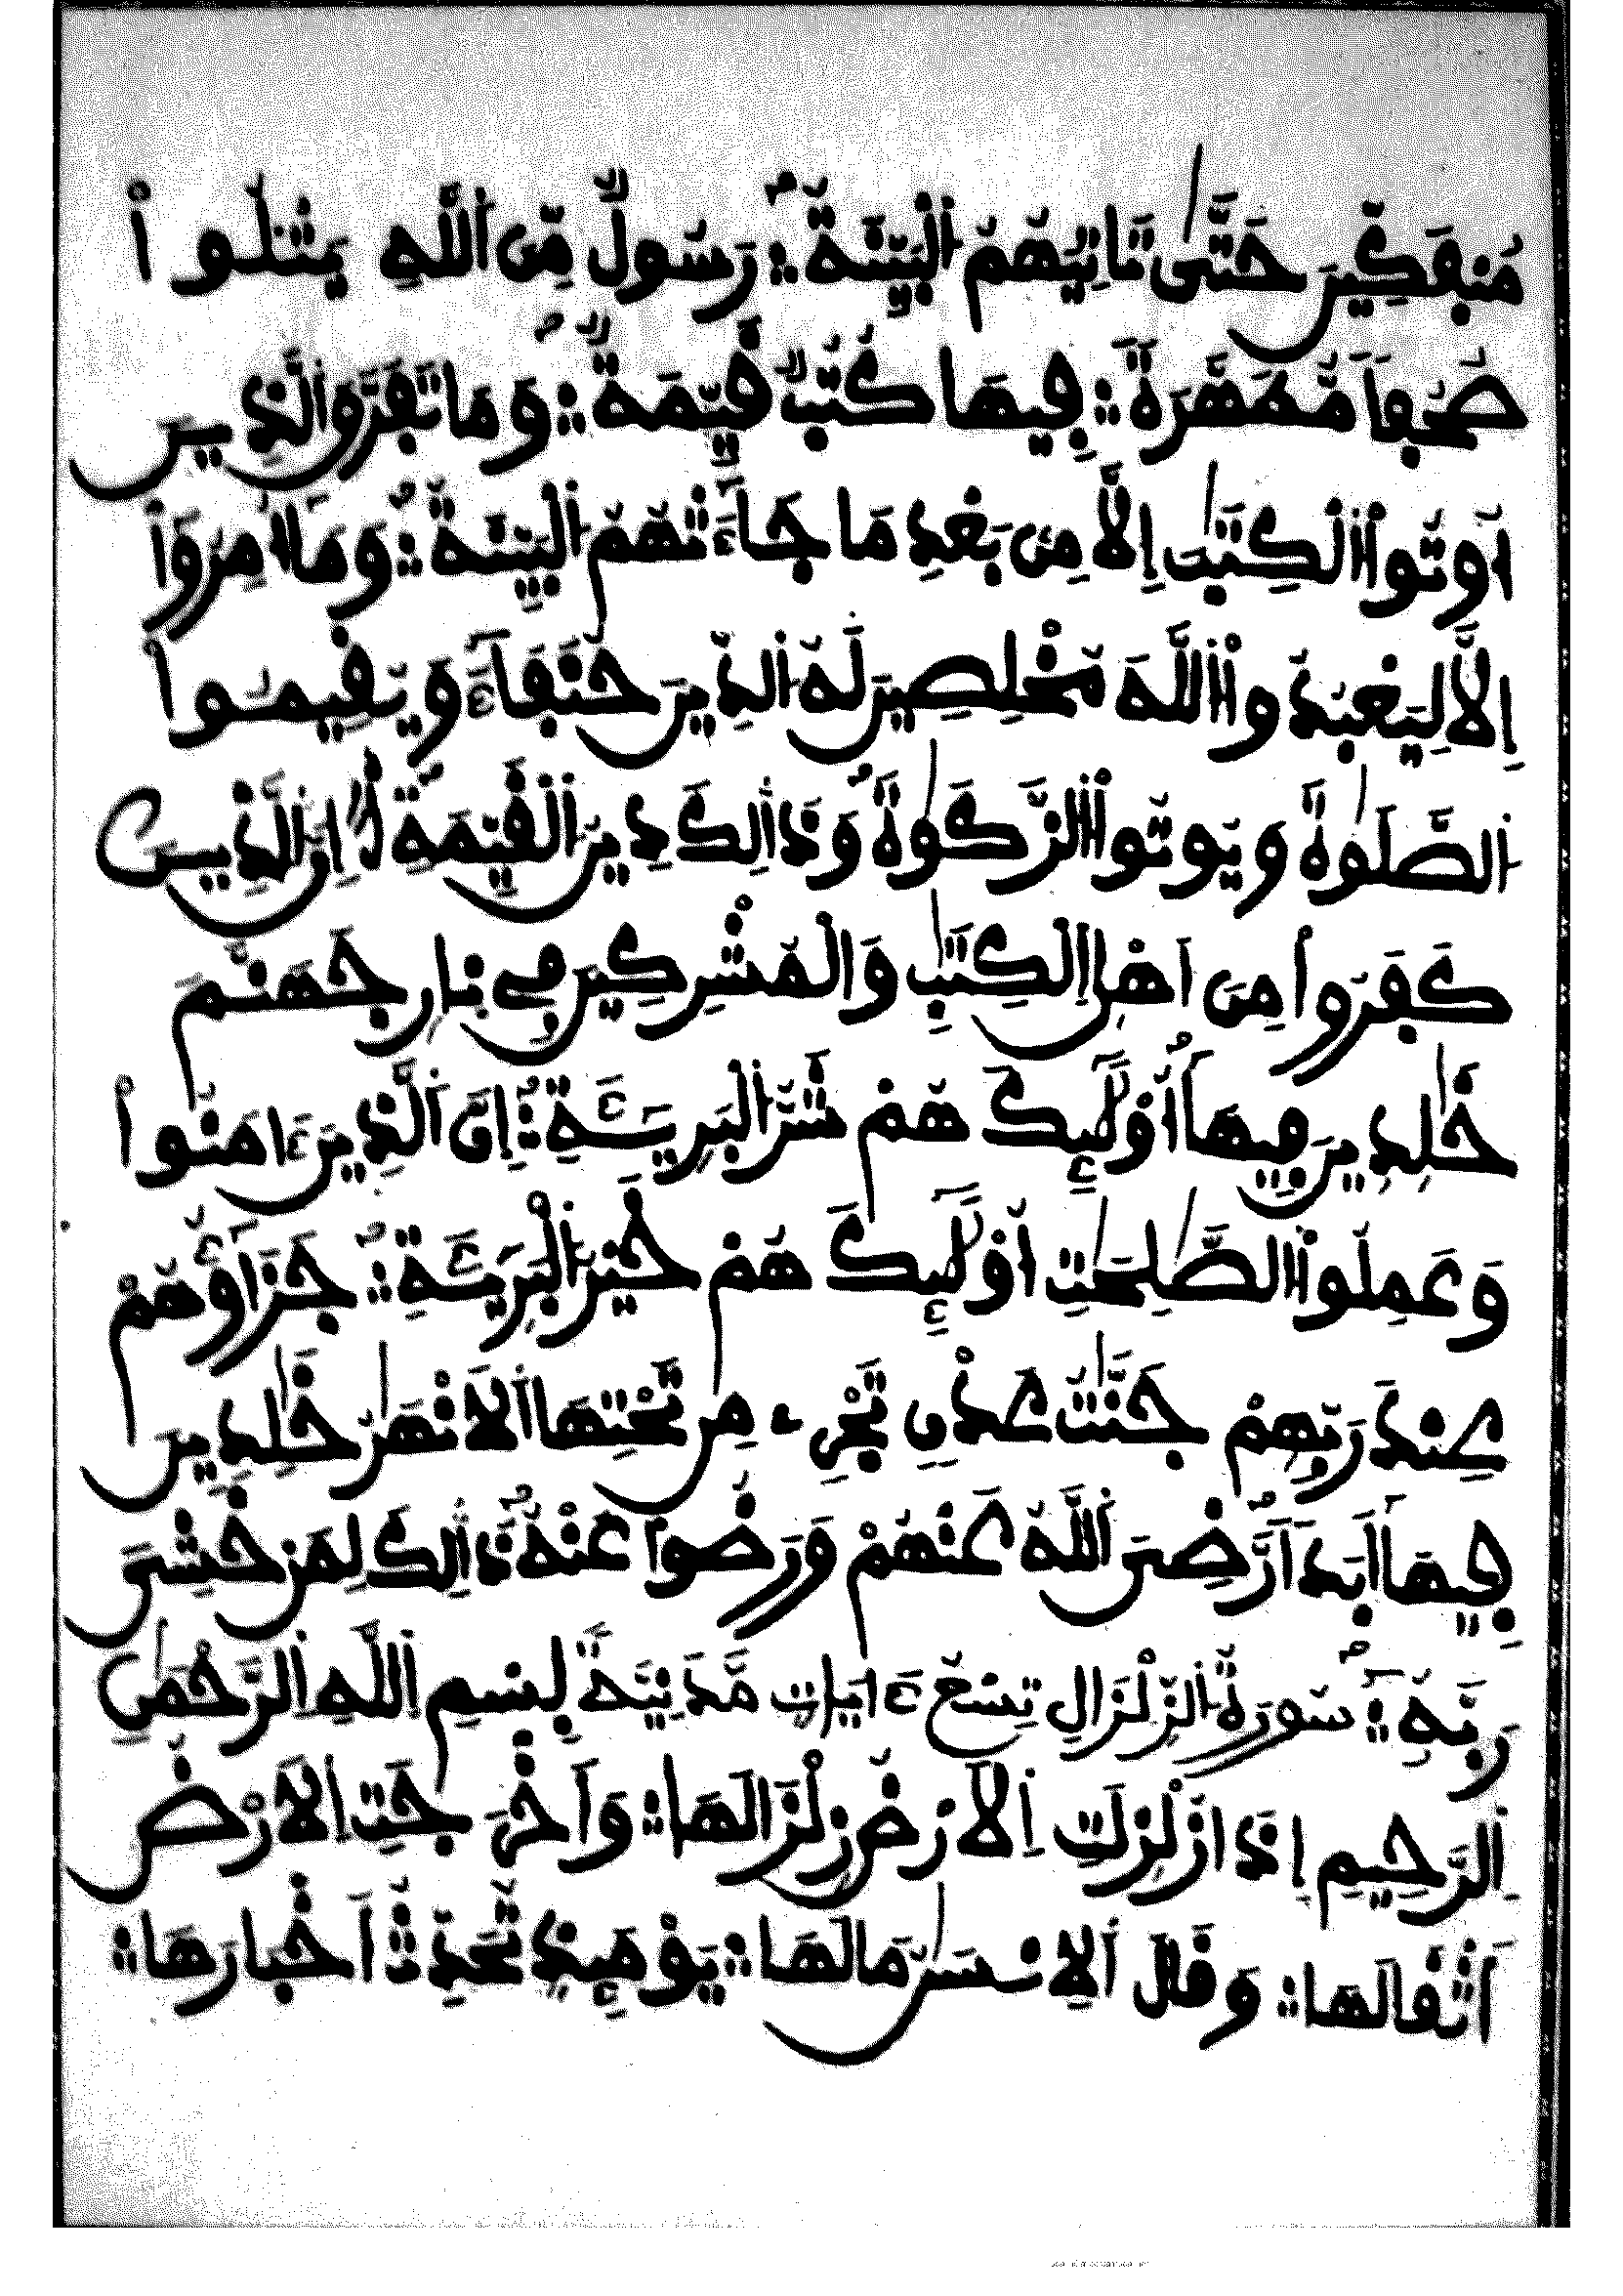 مُنفَكِّينَ حَتَّىٰ تَاتِيَهُمُ اُ۬لْبَيِّنَةُ ۝ رَسُولٞ مِّنَ اَ۬للَّهِ يَتْلُواْ
صُحُفاٗ مُّطَهَّرَةٗ ۝ فِيهَا كُتُبٞ قَيِّمَةٞ ۝ وَمَا تَفَرَّقَ اَ۬لذِينَ
أُوتُواْ اُ۬لْكِتَٰبَ إِلَّا مِنۢ بَعْدِ مَا جَآءَتْهُمُ اُ۬لْبَيِّنَةُ ۝ وَمَآ أُمِرُوٓاْ
إِلَّا لِيَعْبُدُواْ اُ۬للَّهَ مُخْلِصِينَ لَهُ اُ۬لدِّينَ حُنَفَآءَ وَيُقِيمُواْ
اُ۬لصَّلَوٰةَ وَيُوتُواْ اُ۬لزَّكَوٰةَ وَذَٰلِكَ دِينُ اُ۬لْقَيِّمَةِ إِنَّ اَ۬لذِينَ
كَفَرُواْ مِنَ اَهْلِ اِ۬لْكِتَٰبِ وَالْمُشْرِكِينَ فِي نَارِ جَهَنَّمَ
خَٰلِدِينَ فِيهَآ أُوْلَٰٓئِكَ هُمْ شَرُّ اُ۬لْبَرِيٓـَٔةِ ۝ إِنَّ اَ۬لذِينَ ءَامَنُواْ
وَعَمِلُواْ اُ۬لصَّٰلِحَٰتِ أُوْلَٰٓئِكَ هُمْ خَيْرُ اُ۬لْبَرِيٓـَٔةِ ۝ جَزَآؤُهُمْ
عِندَ رَبِّهِمْ جَنَّٰتُ عَدْنٖ تَجْرِے مِن تَحْتِهَا اَ۬لَانْهَٰرُ خَٰلِدِينَ
فِيهَآ أَبَداٗ رَّضِيَ اَ۬للَّهُ عَنْهُمْ وَرَضُواْ عَنْهُ ذَٰلِكَ لِمَنْ خَشِيَ
رَبَّهُۥ ۝ سورة الزلزال تسع ءايات مدنية بِسْمِ اِ۬للَّهِ اِ۬لرَّحْمَٰنِ
اِ۬لرَّحِيمِ إِذَا زُلْزِلَتِ اِ۬لَارْضُ زِلْزَالَهَا ۝ وَأَخْرَجَتِ اِ۬لَارْضُ
أَثْقَالَهَا ۝ وَقَالَ اَ۬لِانسَٰنُ مَا لَهَا ۝ يَوْمَئِذٖ تُحَدِّثُ أَخْبَارَهَا ۝